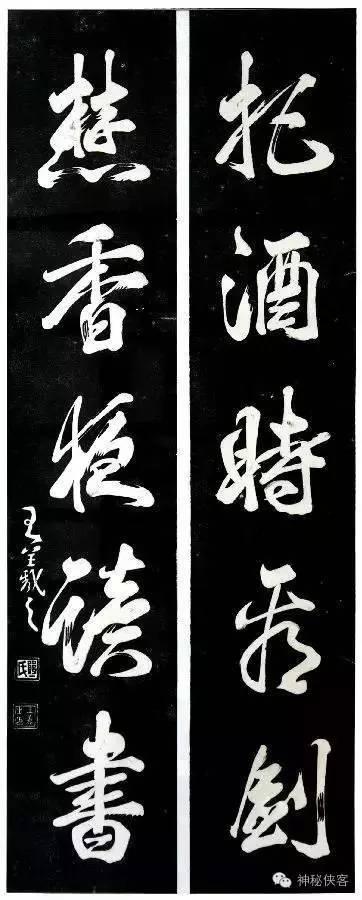 把酒時看劍
焚香夜讀書
王羲之
神秘侠客